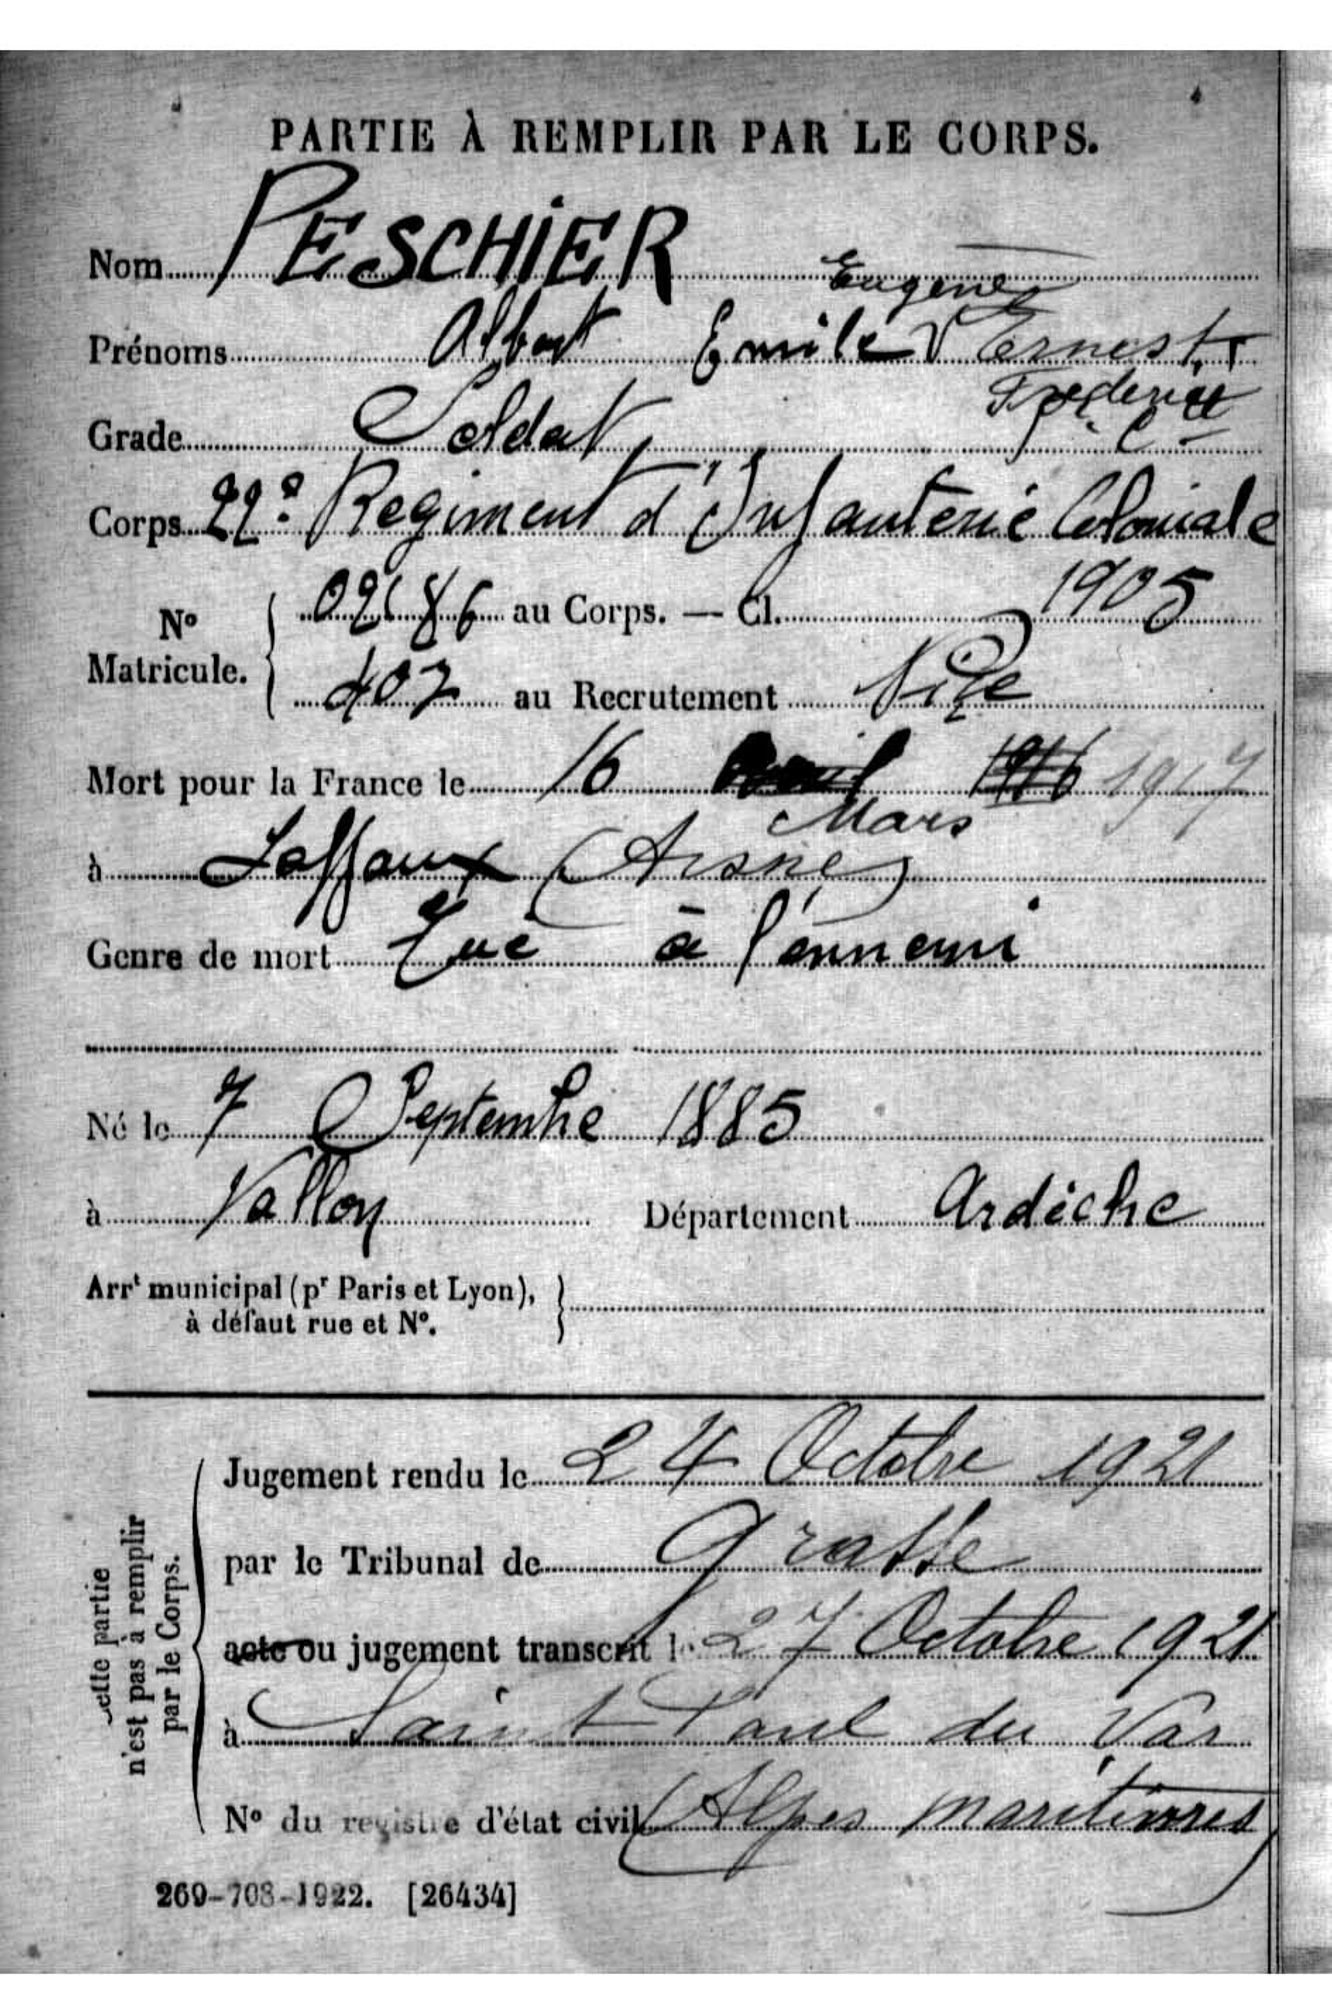 PARTIE À REMPLIR PAR LE CORPS.
Nom PESCHIER
Eugène
Prénoms Albert Emile V Ernest
Frederic
Grade Soldat
Corps 22e Regiment d'Infanterie Coloniale
No Matricule. { 02686 au Corps. — Cl. 1905
407 au Recrutement Nice
Mort pour la France le 16 Avril 1916 1917
Mars
à Laffaux (Aisne)
Genre de mort Tué à l'ennemi
Né le 7 Septembre 1885
à Vallon Département Ardèche
Arrt municipal (pr Paris et Lyon), à défaut rue et No. }
Cette partie n'est pas à remplir par le Corps.
Jugement rendu le 24 Octobre 1921
par le Tribunal de Grasse
acte ou jugement transcrit le 27 Octobre 1921
à Saint Paul du Var
No du registre d'état civil (Alpes maritimes)
269-708-1922. [26434]